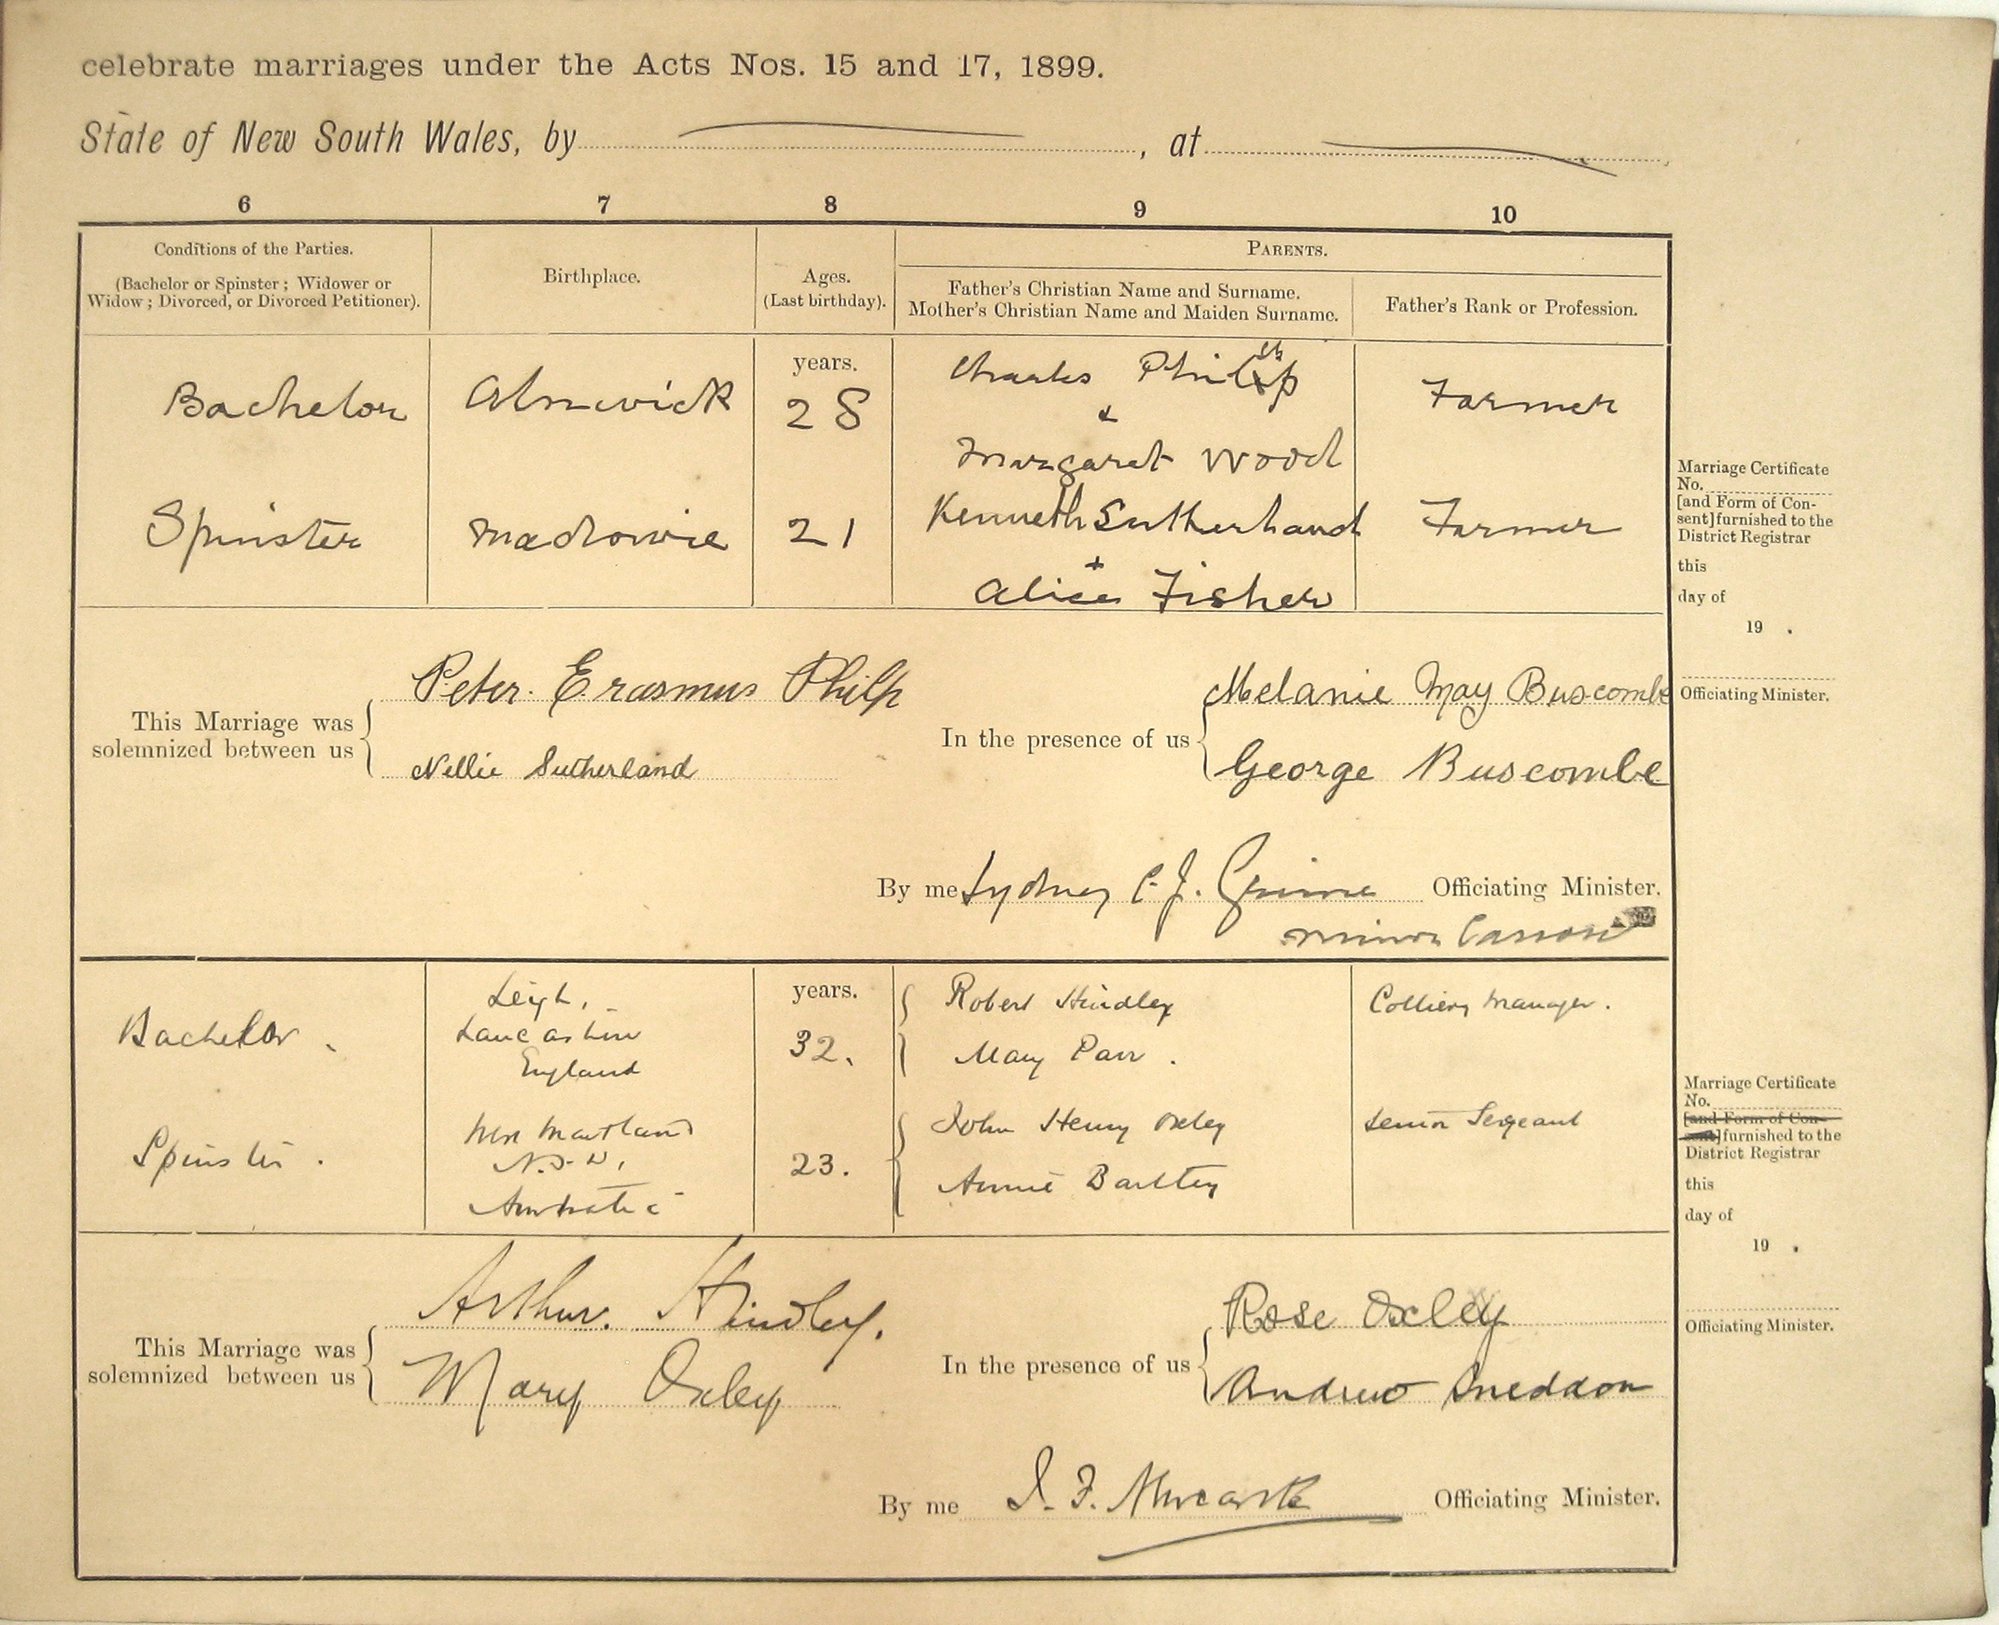 celebrate marriages under the Acts Nos. 15 and 17, 1899.
State of New South Wales, by , at
6 7 8 9 10
Conditions of the Parties.
(Bachelor or Spinster ; Widower or
Widow ; Divorced, or Divorced Petitioner).
Birthplace.
Ages.
(Last birthday).
PARENTS.
Father's Christian Name and Surname.
Mother's Christian Name and Maiden Surname.
Father's Rank or Profession.
years.
Bachelor Alnwick 28 Charles Philp Farmer
&
Margaret Wood
Spinster Medlowie 21 Kenneth Sutherland Farmer
+
Alice Fisher
Marriage Certificate
No.
[and Form of Con-
sent] furnished to the
District Registrar
this
day of
19 .
Officiating Minister.
This Marriage was
solemnized between us
Peter Erasmus Philp
Nellie Sutherland
In the presence of us
Melanie May Buscombe
George Buscombe
By me Sydney C. J. Grime Officiating Minister.
Minor Canon
years.
Bachelor. Leigh, Lancashire England 32. Robert Hindley Colliery Manager.
Mary Parr.
Spinster. West Maitland N.S.W. Australia 23. John Henry Oxley Senior Sergeant
Annie
Marriage Certificate
No.
[and Form of Con-
sent] furnished to the
District Registrar
this
day of
19 .
Officiating Minister.
This Marriage was
solemnized between us
Arthur. Hindley.
Mary Oxley
In the presence of us
Rose Oxley
Andrew Sneddon
By me J. F. Newcastle Officiating Minister.